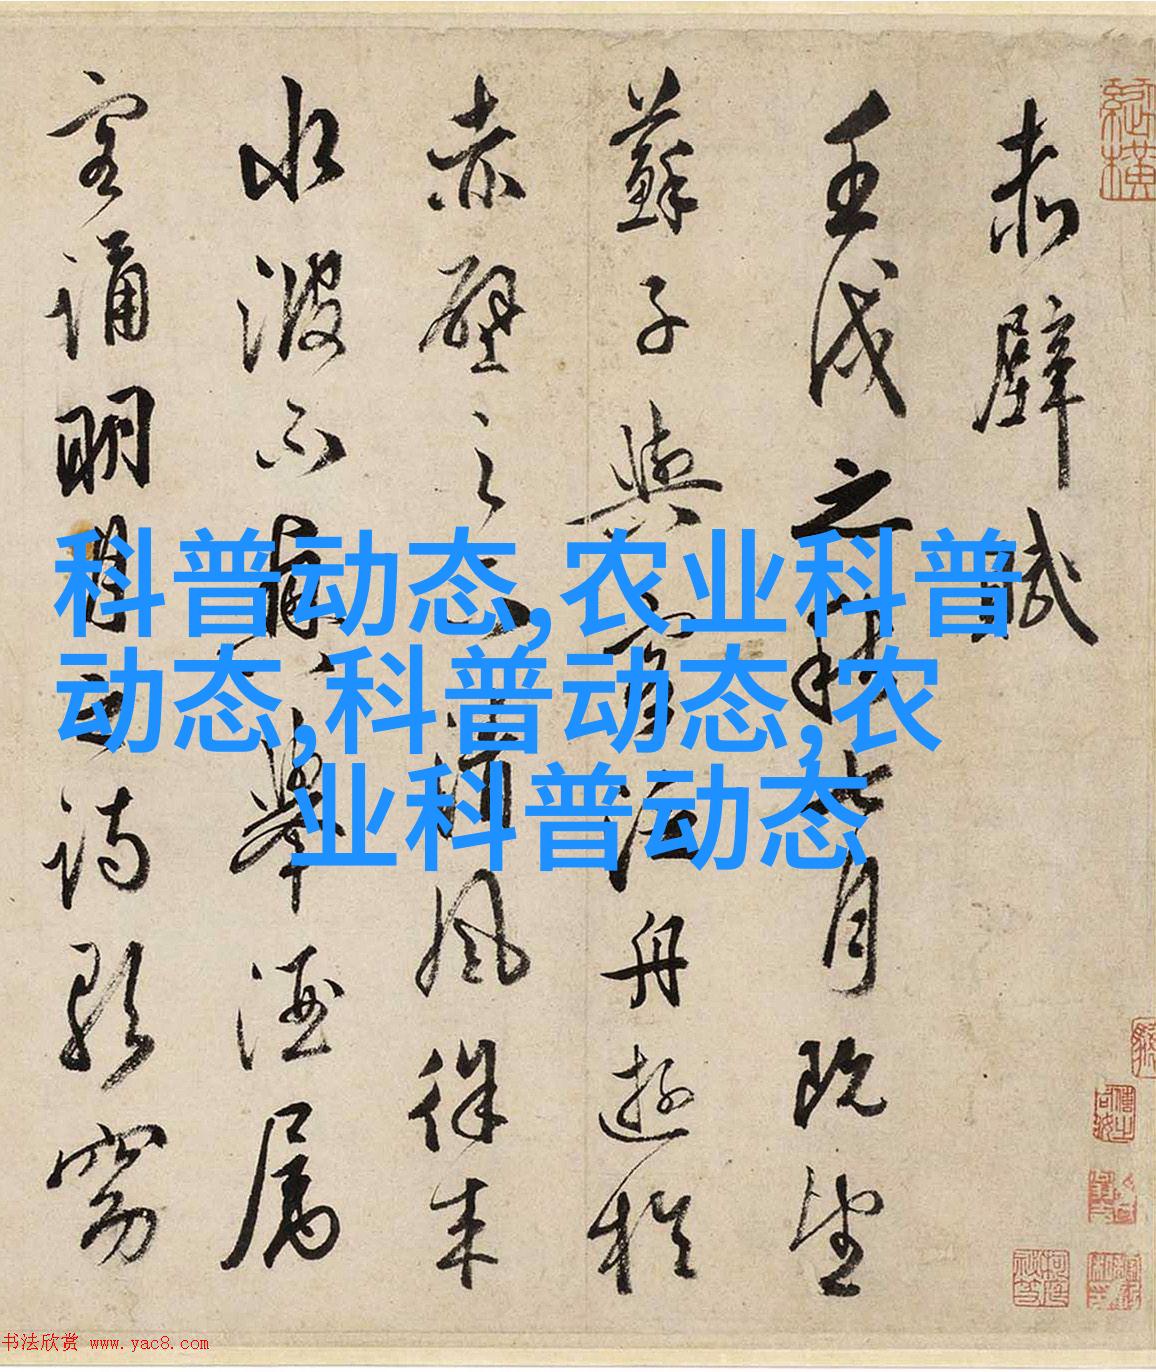 赤壁賦
壬戌之秋七月既望
蘇子與客泛舟遊於
赤壁之下清風徐来
水波不興舉酒属
客誦明月之詩歌窈
科普动态,农业科普
动态,科普动态,农
业科普动态
书法欣赏 www.yac8.com